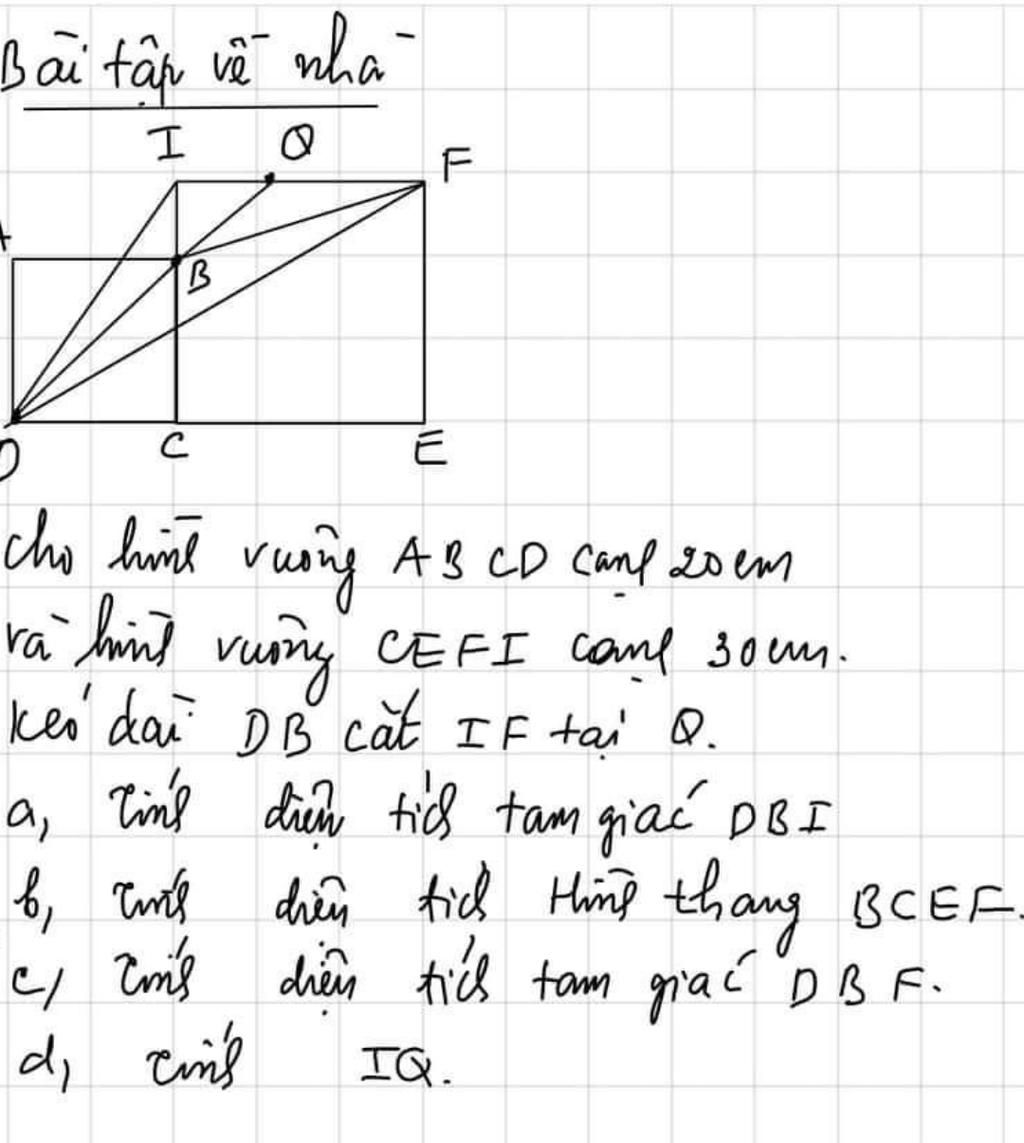 Bài tập về nhà
I Q F
A
B
D C E
Cho hình vuông ABCD cạnh 20cm
và hình vuông CEFI cạnh 30cm.
kéo dài DB cắt IF tại Q.
a, Tính diện tích tam giác DBI
b, Tính diện tích Hình thang BCEF.
c, Tính diện tích tam giác DBF.
d, Tính IQ.